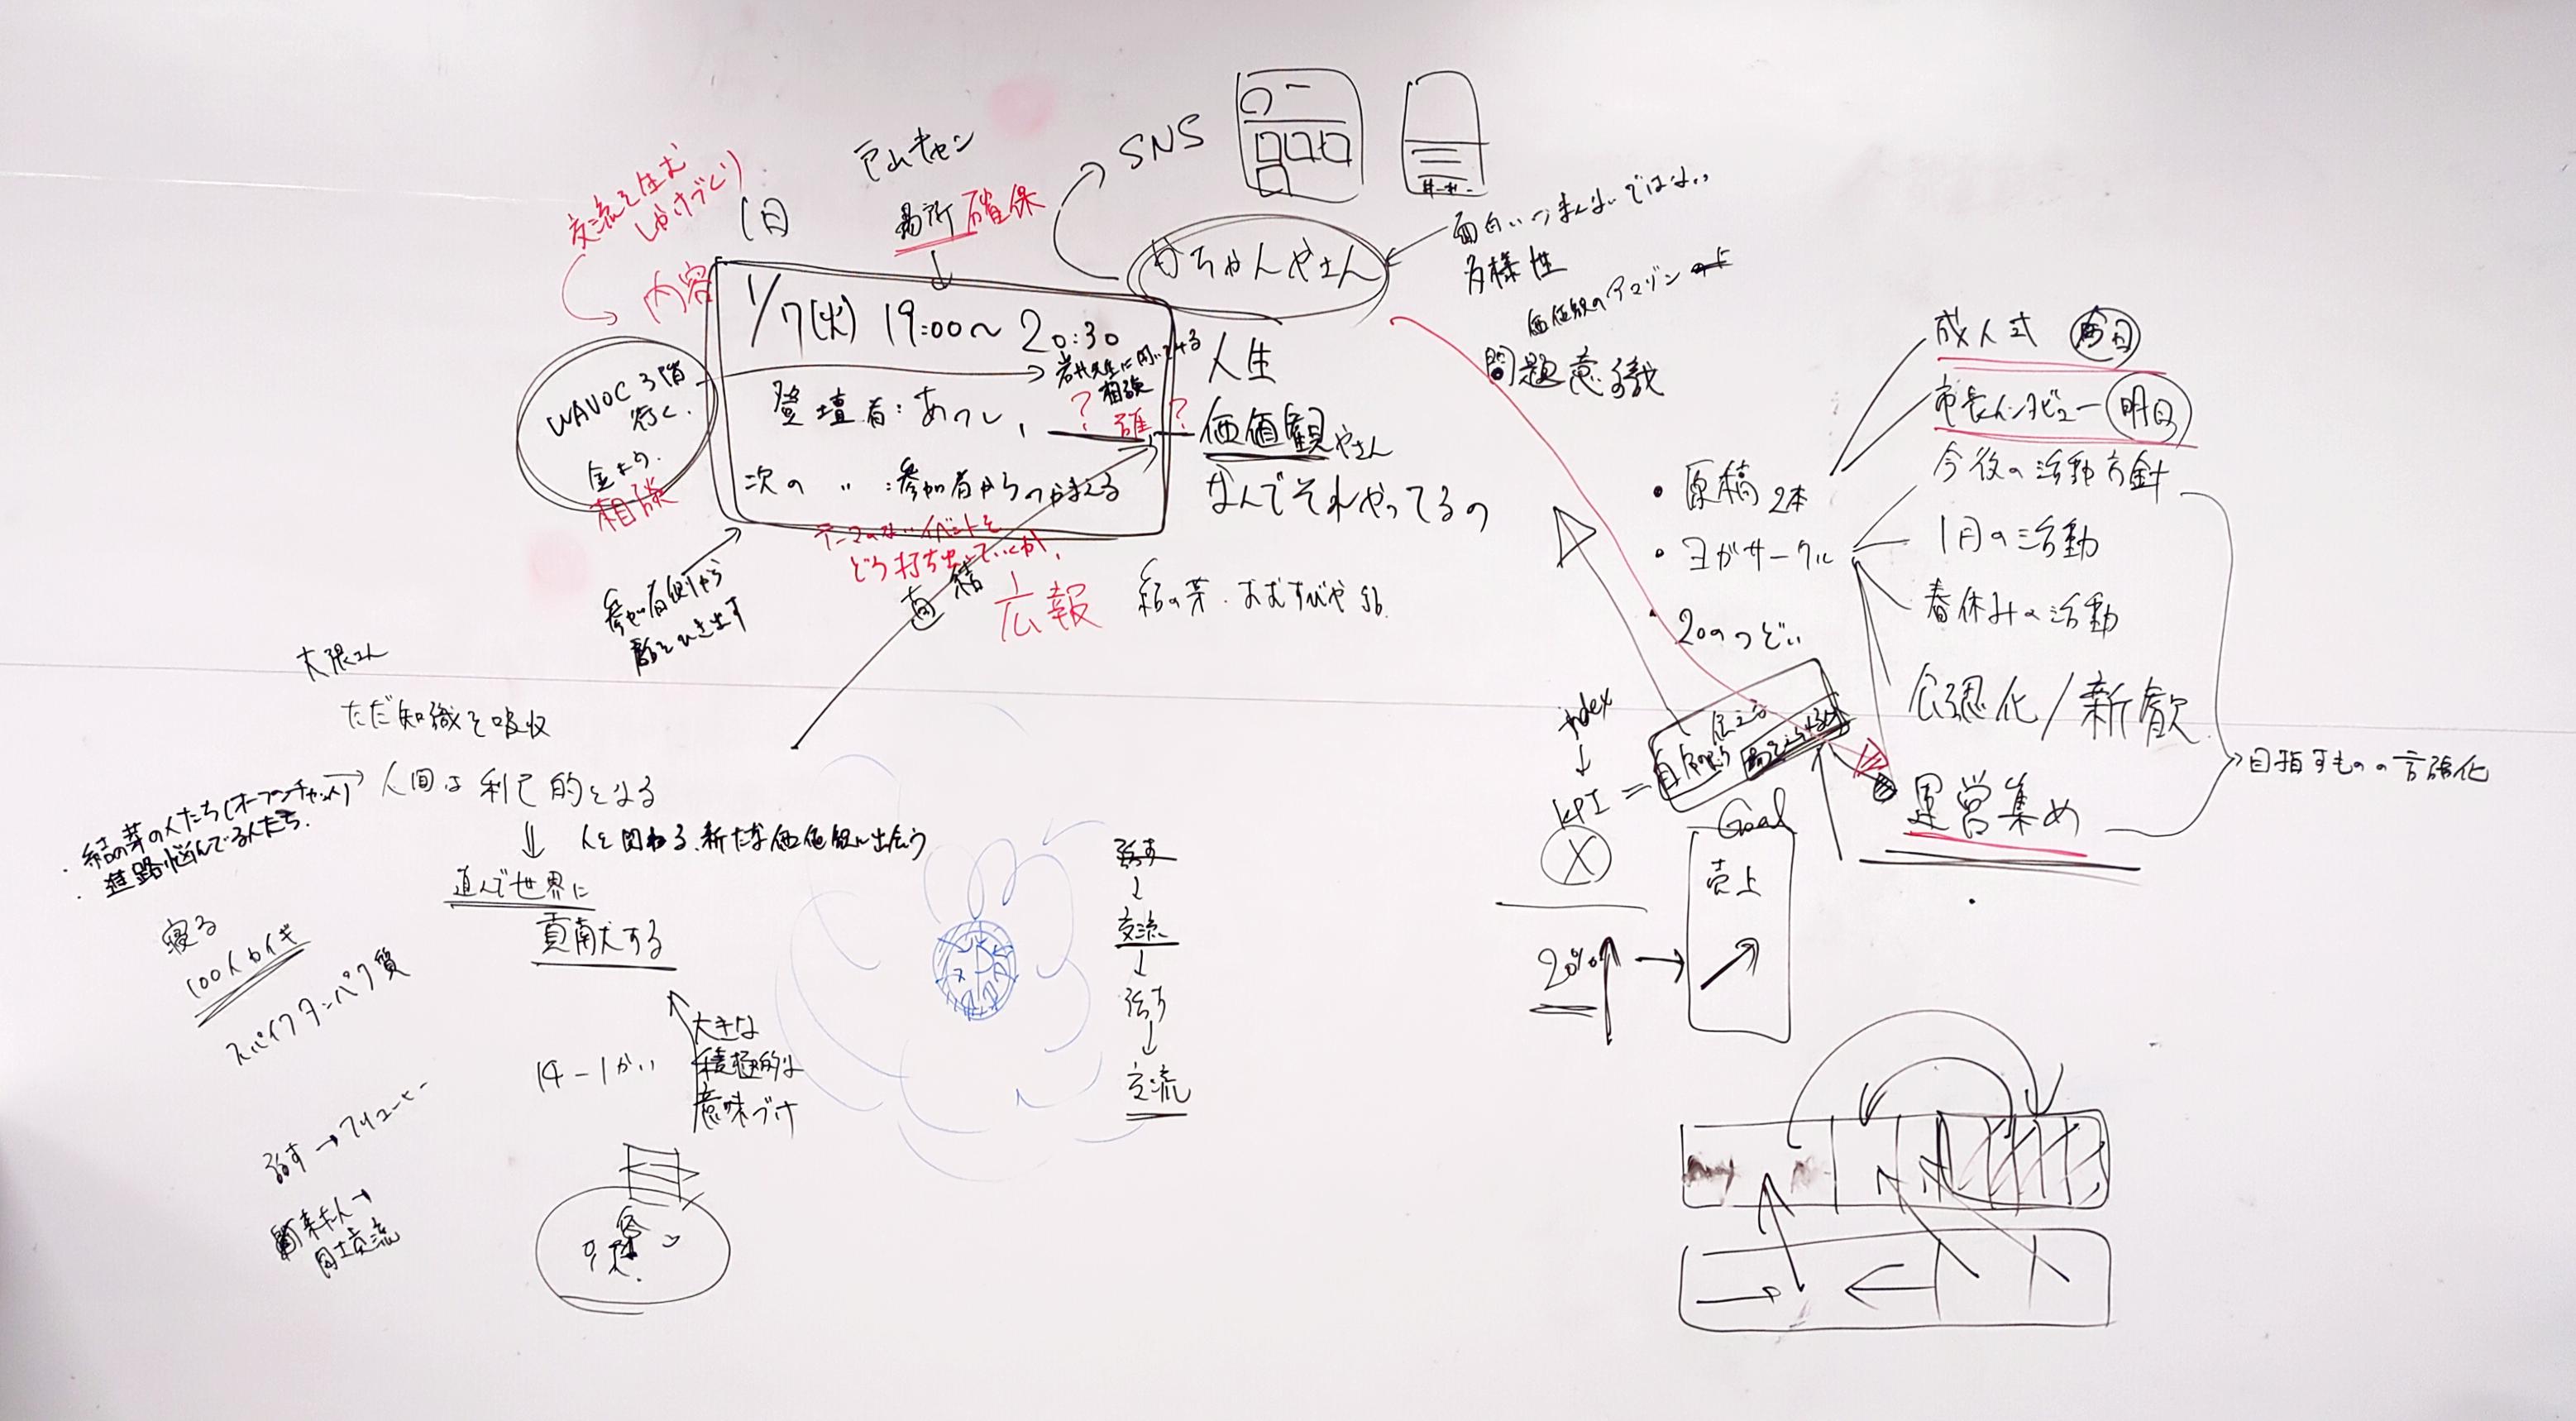 交流を生む
しかけづくり
内容
1日
戸山キャン
場所確保
SNS
1/7(火) 19:00～20:30
登壇者:あつし、
？誰？
相談
次の 〃 :参加者からつかまえる
WAVOC 3階
行く.
相談
テーマのないイベントを
どう打ち出していくか.
広報
参加者側から
話をひき出す
ちゃんやさん
面白いつまんないではない
多様性
価値観のアマゾン
問題意識
人生
価値観やさん
なんでそれやってるの
直結
・原稿 2本
・ヨガサークル
・20のつどい
成人式 今日
市長インタビュー 明日
今後の活動方針
1月の活動
春休みの活動
公認化/新歓
運営集め
目指すものの言語化
index
KPI =
X
20%
Goal
売上
ただ知識を吸収
・結の芽の人たち(オープンチャット)
・進路悩んでる人たち.
人間は利己的となる
人と関わる.新たな価値観に出会う
進んで世界に
貢献する
大きな
積極的な
意味づけ
寝る
100人カイギ
スパイクタンパク質
話す
交流
話す
交流
話す→
来た人
同士交流